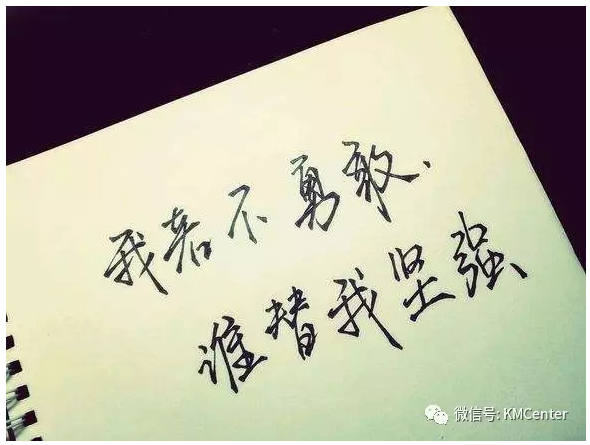 我若不勇敢、
谁替我坚强
微信号: KMCenter